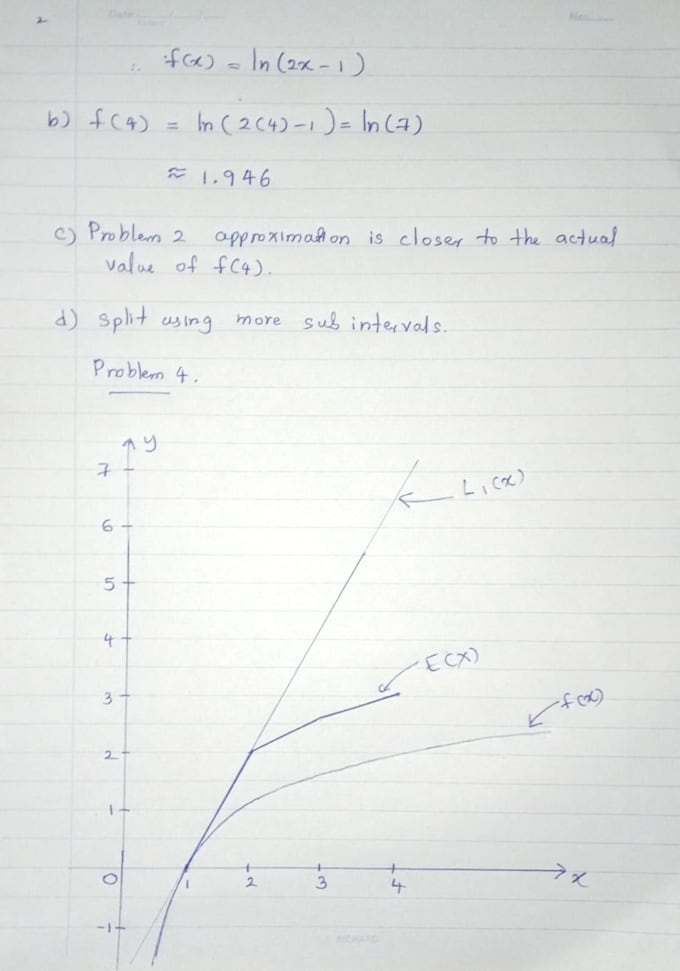 2
Date
No
∴ f(x) = ln(2x-1)
b) f(4) = ln(2(4)-1) = ln(7)
≈ 1.946
c) Problem 2 approximation is closer to the actual
value of f(4).
d) split using more sub intervals.
Problem 4.
y
7
L₁(x)
6
5
4
E(x)
3
f(x)
2
1
0 1 2 3 4 x
-1
RICHARD